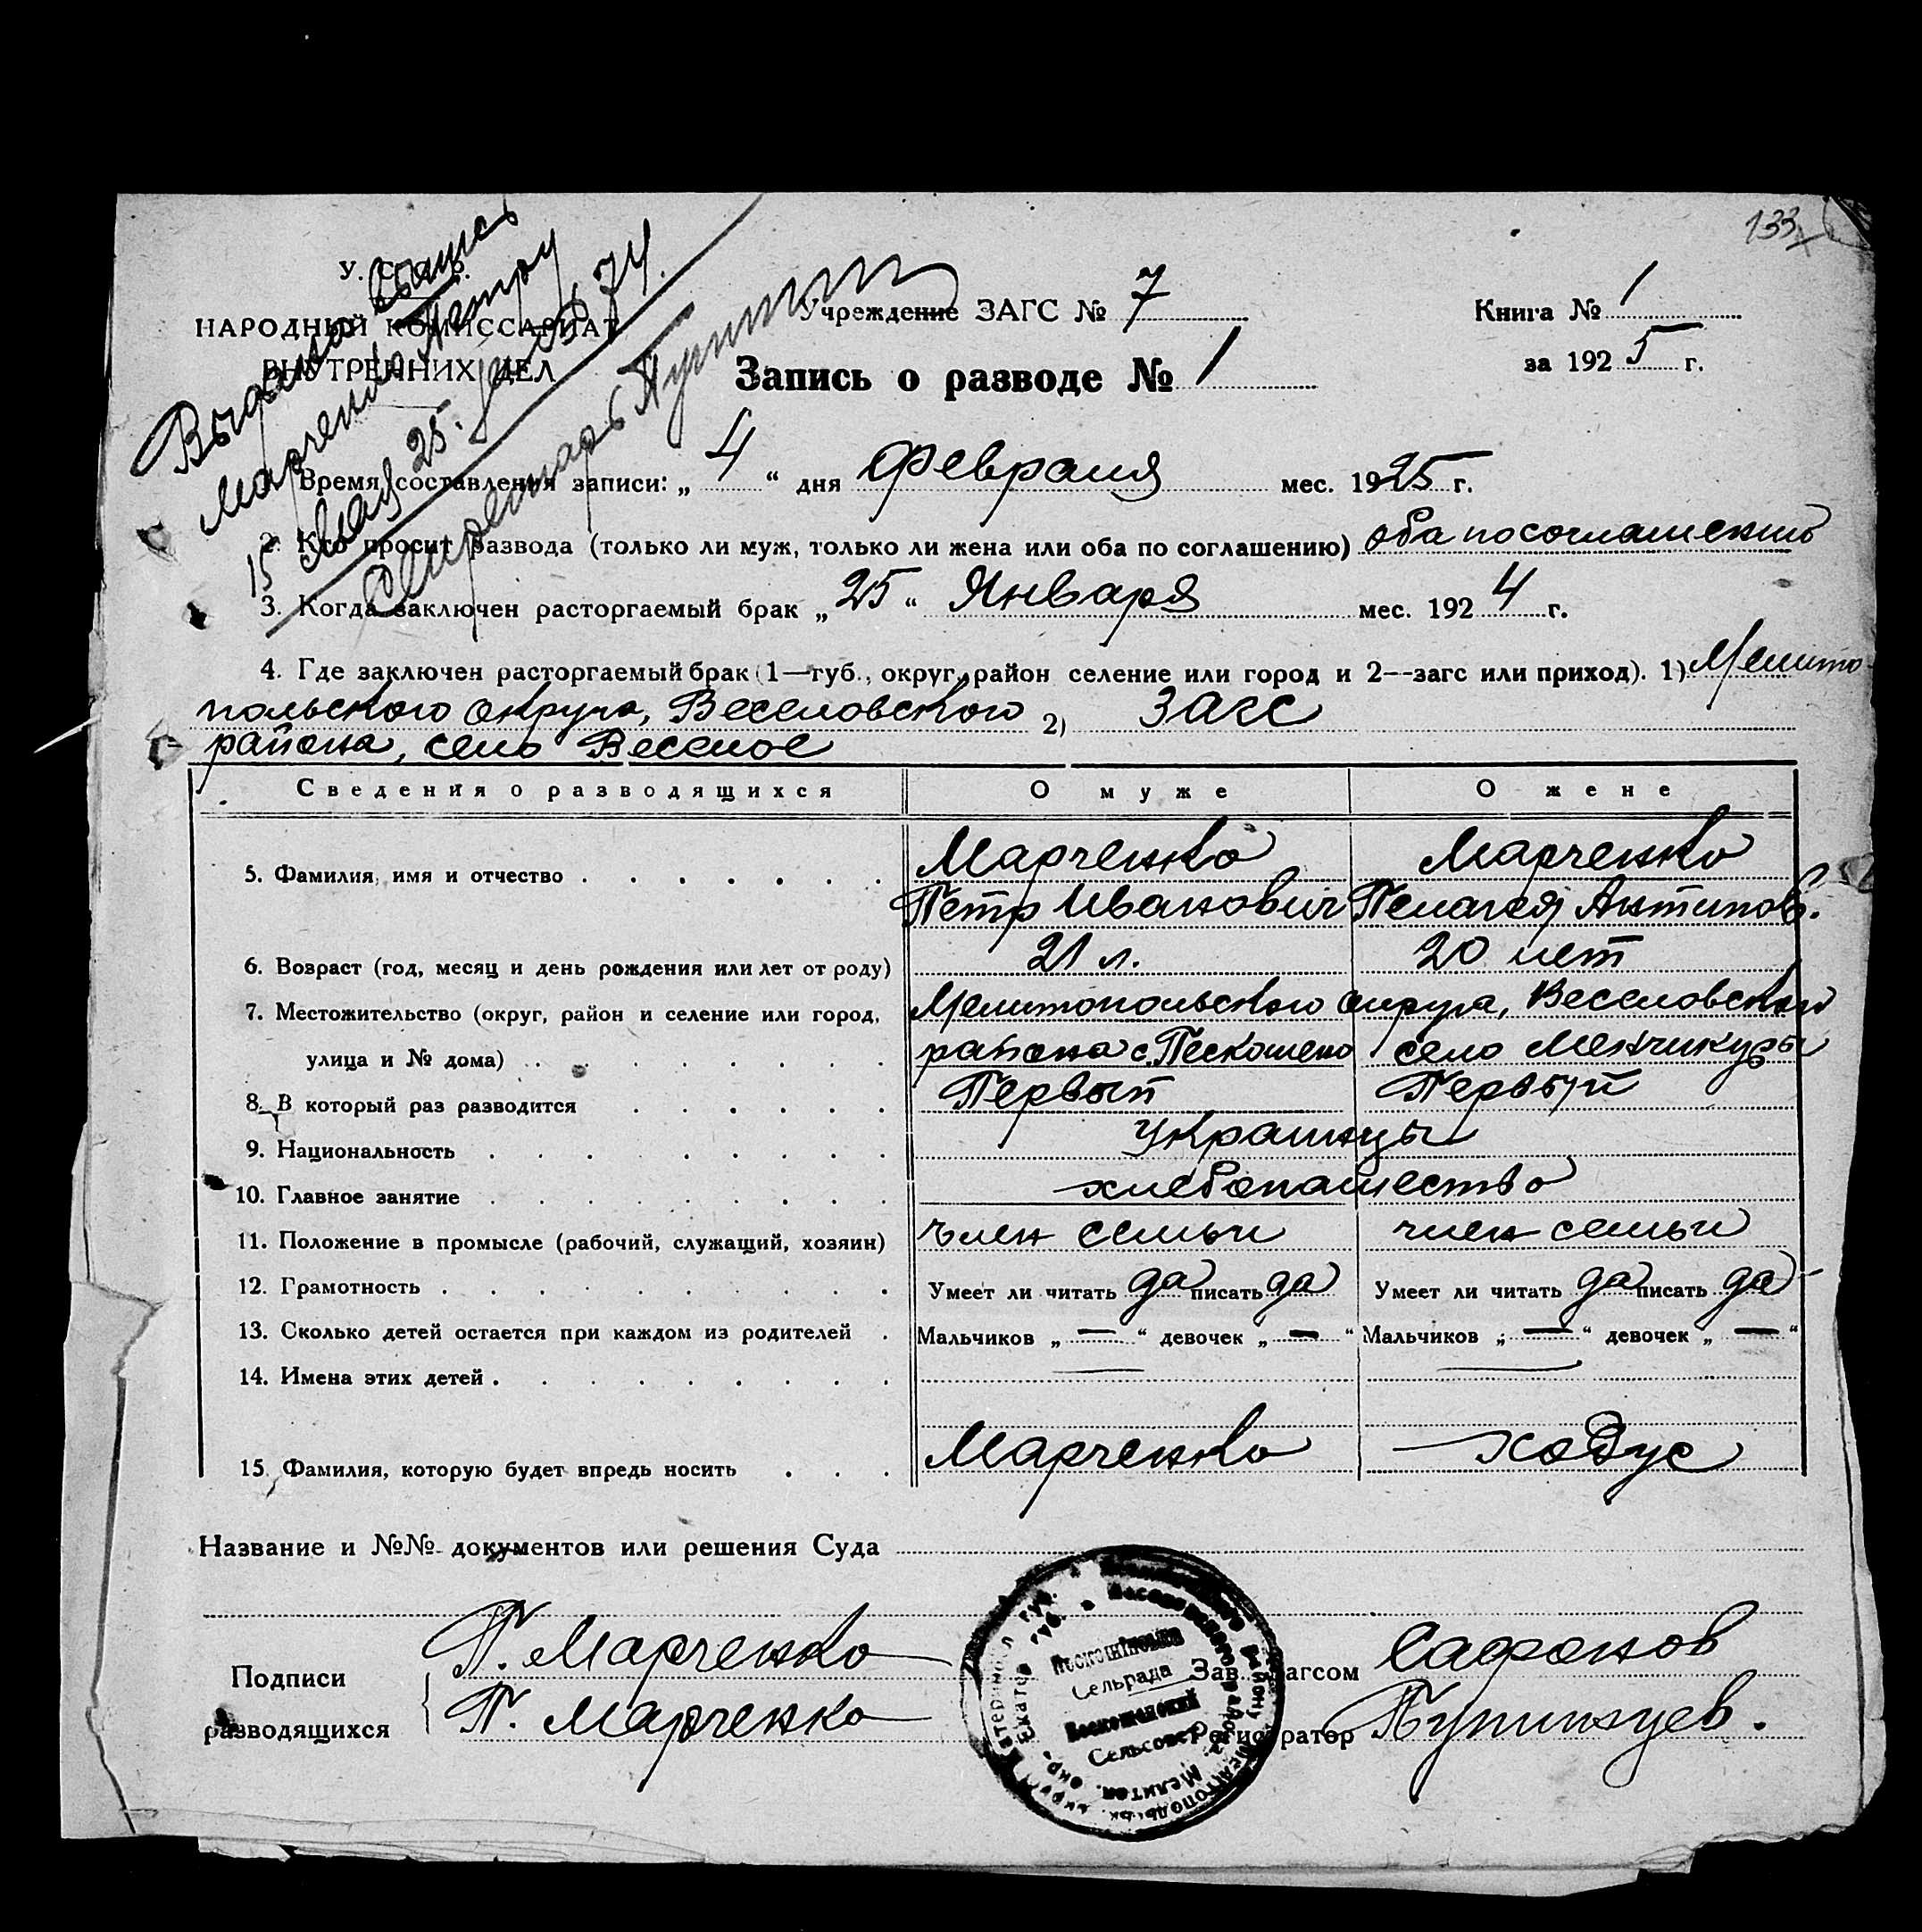 133
У. С. С. Р.
НАРОДНЫЙ КОМИССАРИАТ
ВНУТРЕННИХ ДЕЛ
Учреждение ЗАГС № 7
Книга № 1
за 1925 г.
Запись о разводе № 1
Марченко Петру
15 мая 25. № 74.
Секретарь
Время составления записи: „ 4 “ дня Февраля мес. 1925 г.
2. Кто просит развода (только ли муж, только ли жена или оба по соглашению) оба по соглашению
3. Когда заключен расторгаемый брак „ 25 “ Января мес. 1924 г.
4. Где заключен расторгаемый брак (1—губ., округ, район селение или город и 2—загс или приход). 1) Мелито-
польского округа, Веселовского 2) Загс
района, село Веселое
Сведения о разводящихся О муже О жене
5. Фамилия, имя и отчество Марченко Марченко
Петр Иванович Пелагея Антипов.
6. Возраст (год, месяц и день рождения или лет от роду) 21 л. 20 лет
7. Местожительство (округ, район и селение или город, Мелитопольского округа, Веселовского
улица и № дома) района с. Пескошено село Менчикуры
8. В который раз разводится Первый Первый
9. Национальность Украинцы
10. Главное занятие хлебопашество
11. Положение в промысле (рабочий, служащий, хозяин) член семьи член семьи
12. Грамотность Умеет ли читать да писать да Умеет ли читать да писать да
13. Сколько детей остается при каждом из родителей Мальчиков „ — “ девочек „ — “ Мальчиков „ — “ девочек „ — “
14. Имена этих детей — —
15. Фамилия, которую будет впредь носить Марченко Ходус
Название и №№ документов или решения Суда
Подписи
разводящихся
П. Марченко
П. Марченко
Сельрада
Сельсовет
Зав. Загсом Сафонов
Регистратор